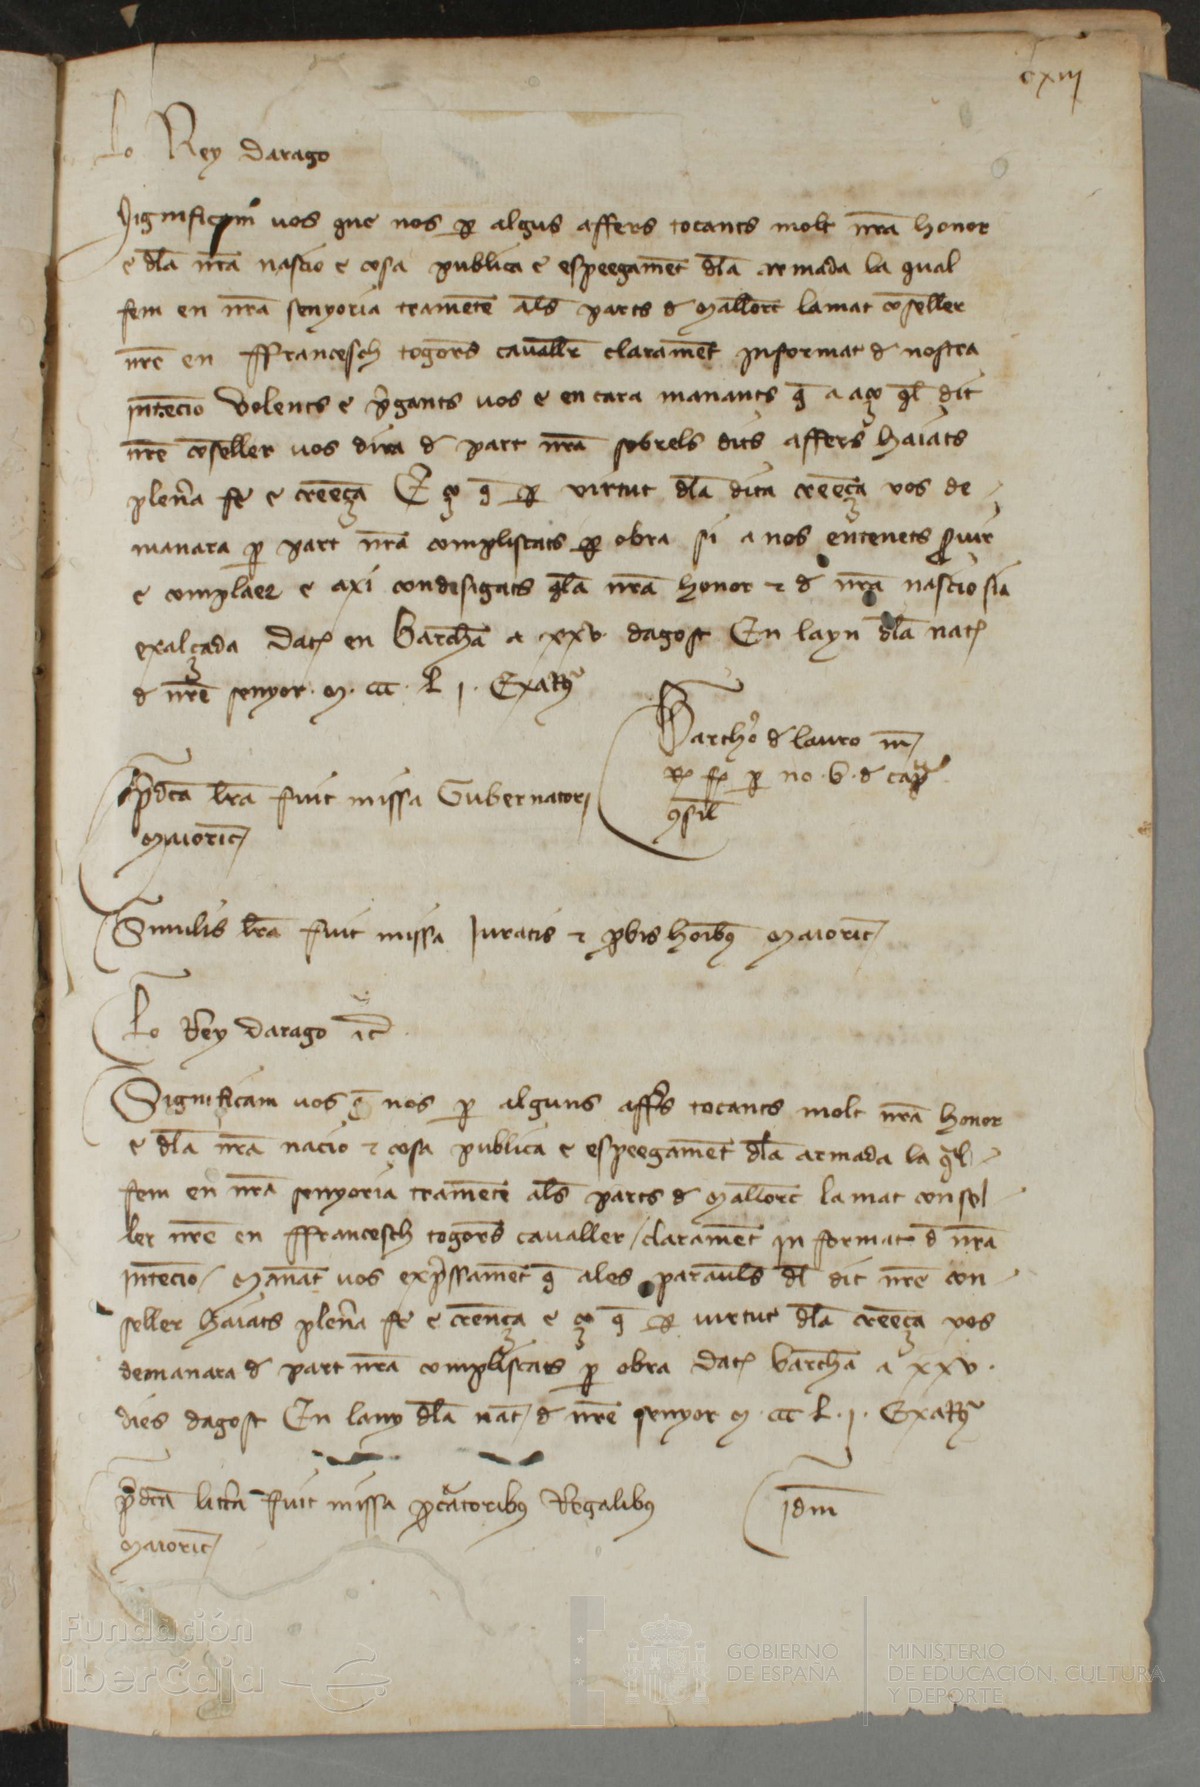 cxiij
Lo Rey darago
Significam vos que nos per algus affers tocants molt nr̄a honor
e dl̄a nr̄a nascio e cosa publica e espeegamēt dl̄a armada la qual
fem en nr̄a senyoria trametē als̄ parts d mallorc̄ lamat cōseller
nr̄e en ffrancesch togors cavallr̄ claramēt informat d nostra
intēcio volents e p̄gants vos e encara manants q̄ a aço q̄l dit
nr̄e cōseller vos dira d part nr̄a sobrels dits affers haiats
plen̄a fe e creēça E ço q̄ p̱ virtut dl̄a dita creēça vos de
manara p̱ part nr̄a complescats p̱ obra si a nos entenets s̄vir
e complaer e axi condesigats q̄la nr̄a honor ⁊ d nr̄a nascio sia
exalçada Dat̄ en Barchn̄a a xxv dagost En layn dl̄a nat̄
d nr̄e senyor · M · ccc · L j · Exa R̄
Barth̄o d lauro m̄
p̱ no · b · d cap̄
cōsil̄
P̄dc̄a lr̄a fuit missa Gubernatori
Maioric̄
Similis lr̄a fuit missa Juratis ⁊ p̄bis hoīb9 Maioric̄
Lo Rey darago ⁊c̄
Significam vos q̄ nos p̱ alguns aff̄s tocants molt nr̄a honor
e dl̄a nr̄a nacio ⁊ cosa publica e espeegamēt dl̄a armada la q̄l
fem en nr̄a senyoria trametē als̄ parts d mallorc̄ lamat consel
ler nr̄e en ffrancesch togors cavaller / claramēt informat d nr̄a
intēcio / Manāt vos exp̄ssamēt q̄ ales paraul̄s dl̄ dit nr̄e con
seller haiats plen̄a fe e crēnça e ço q̄ p̱ virtut dl̄a creēça vos
demanara d part nr̄a complescats p̱ obra Dat̄ barchn̄a a xxv ·
dies dagost En lany dl̄a nat̄ d nr̄e senyor M · ccc L · j · Exa R̄
P̄dc̄a litt̄a fuit missa p̄cᵃtoribus Regalibus
Maioric̄
Jdm̄
Fundación
iberCaja
GOBIERNO
DE ESPAÑA
MINISTERIO
DE EDUCACIÓN, CULTURA
Y DEPORTE